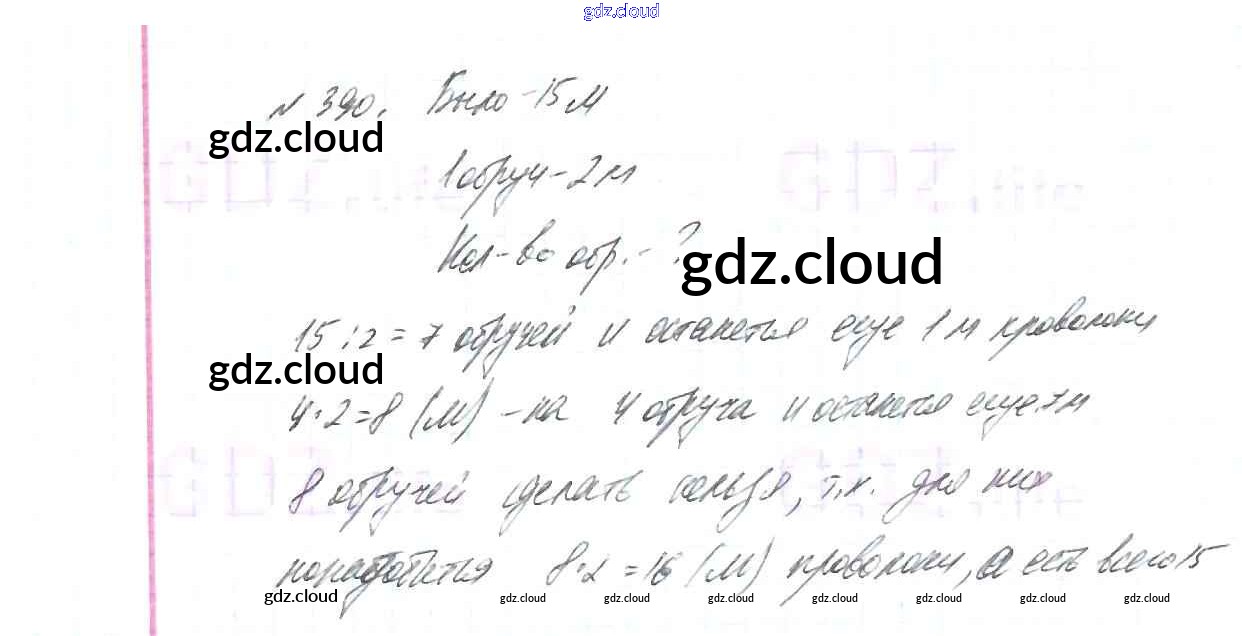 gdz.cloud
№ 390. Было - 15 м
gdz.cloud
1 обруч - 2 м
Кол-во обр. - ?
gdz.cloud
15 : 2 = 7 обручей и останется еще 1 м проволоки
gdz.cloud
4 · 2 = 8 (м) - на 4 обруча и останется еще 7 м
8 обручей сделать нельзя, т.к. для них
8 · 2 = 16 (м) проволоки, а есть всего 15
gdz.cloud gdz.cloud gdz.cloud gdz.cloud gdz.cloud gdz.cloud gdz.cloud gdz.cloud